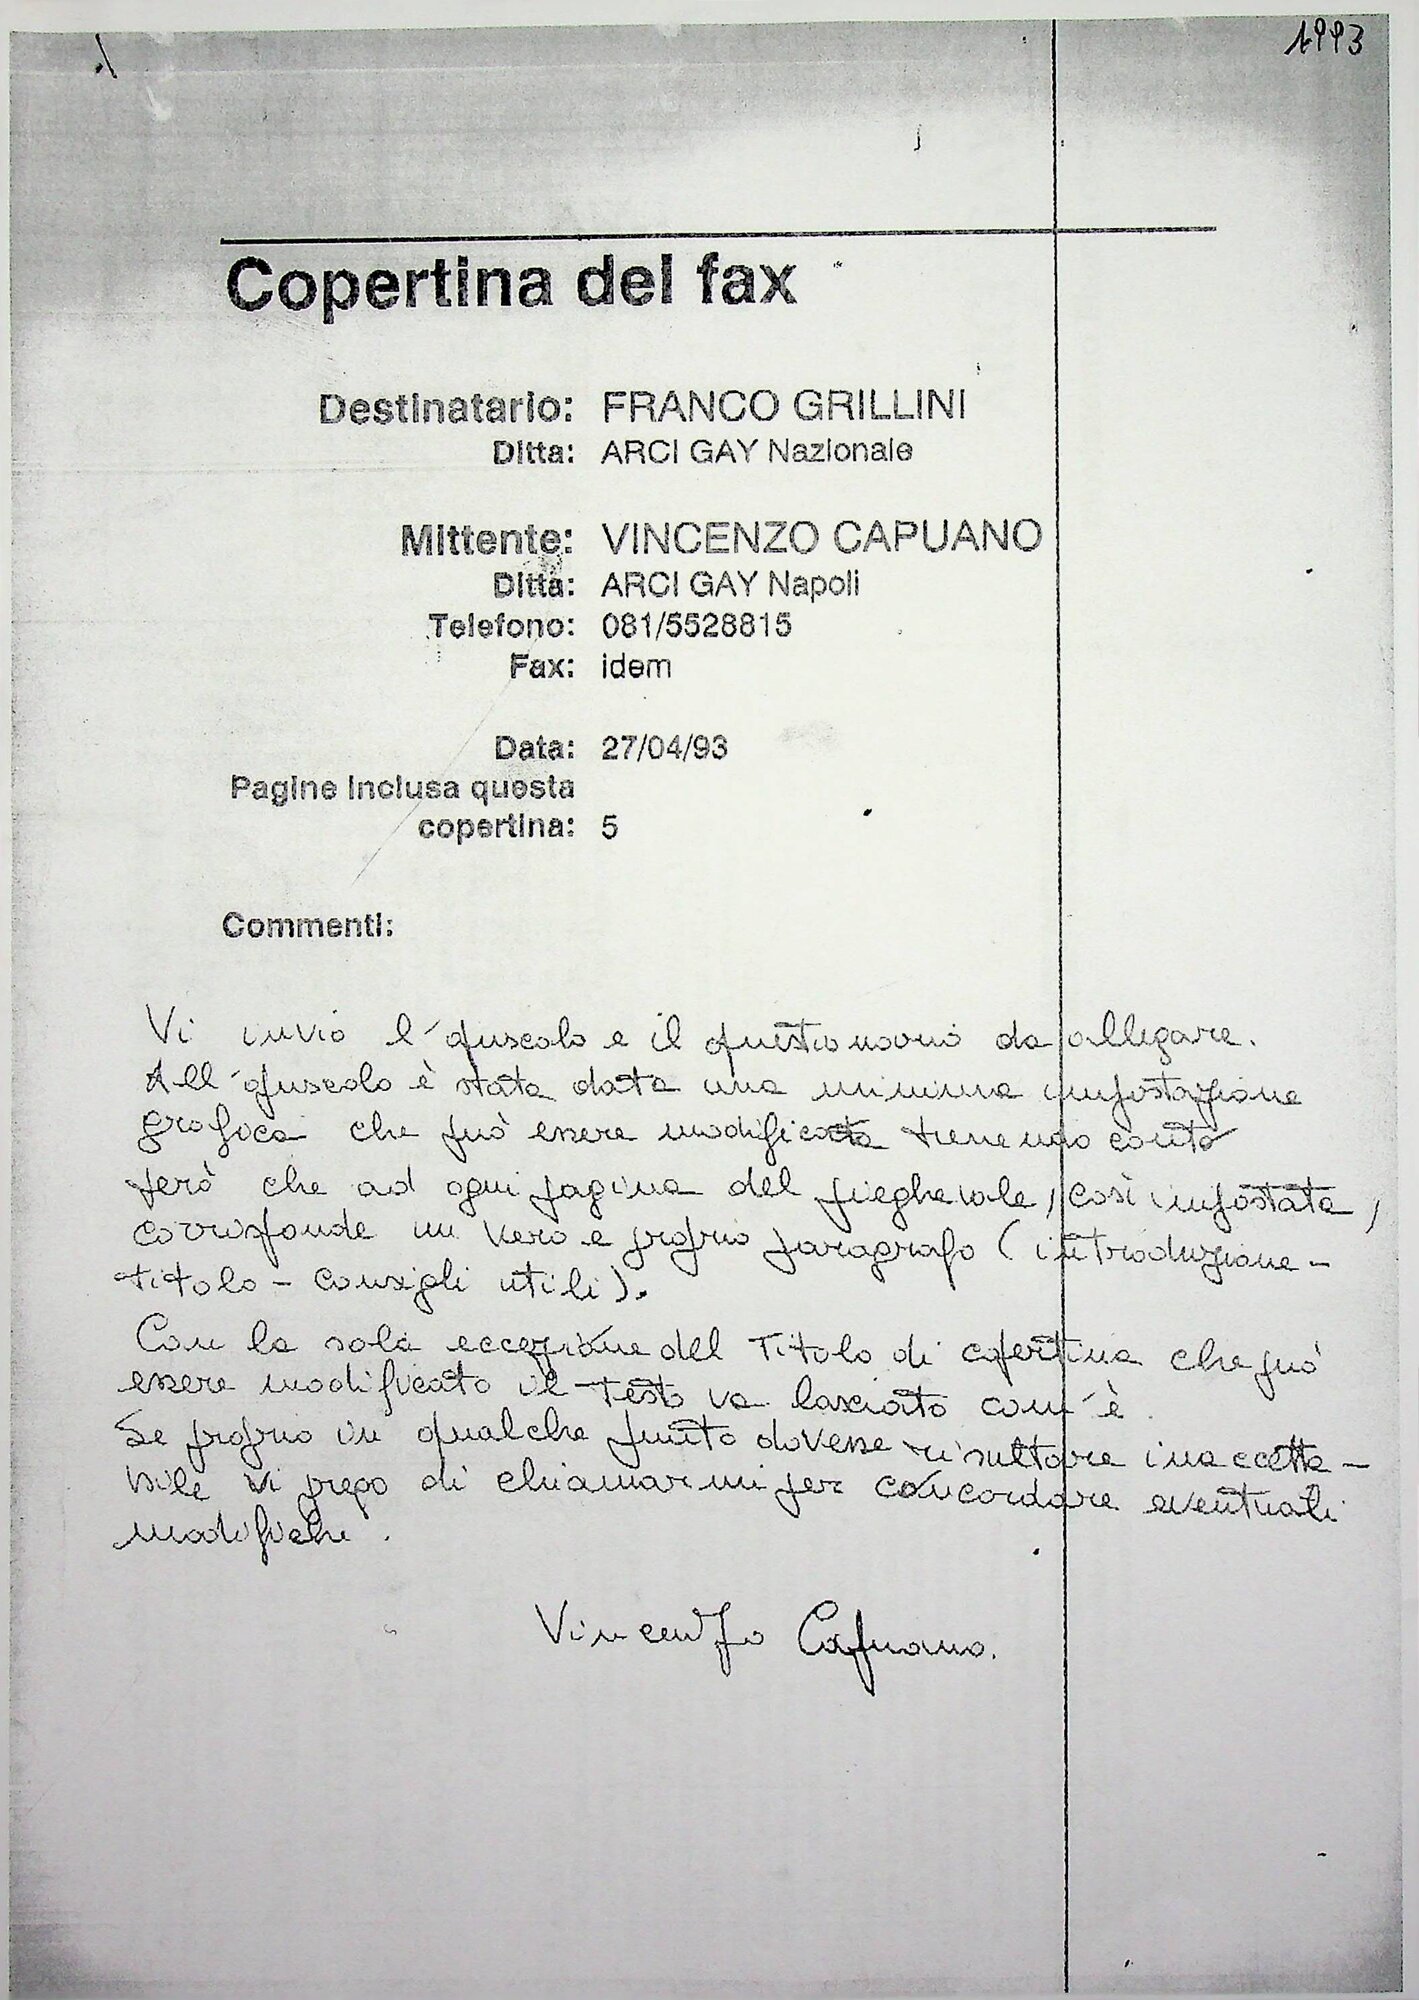 1993
Copertina del fax
Destinatario: FRANCO GRILLINI
Ditta: ARCI GAY Nazionale
Mittente: VINCENZO CAPUANO
Ditta: ARCI GAY Napoli
Telefono: 081/5528815
Fax: idem
Data: 27/04/93
Pagine inclusa questa
copertina: 5
Commenti:
Vi invio l'opuscolo e il questionario da allegare.
All'opuscolo è stata data una minima impostazione
grafica che può essere modificata tenendo conto
però che ad ogni pagina del pieghevole, così impostata,
corrisponde un vero e proprio paragrafo (introduzione -
titolo - consigli utili).
Con la sola eccezione del titolo di copertina che può
essere modificato il testo va lasciato com'è.
Se proprio in qualche punto dovesse risultare inaccetta-
bile vi prego di chiamarmi per concordare eventuali
modifiche.
Vincenzo Capuano.